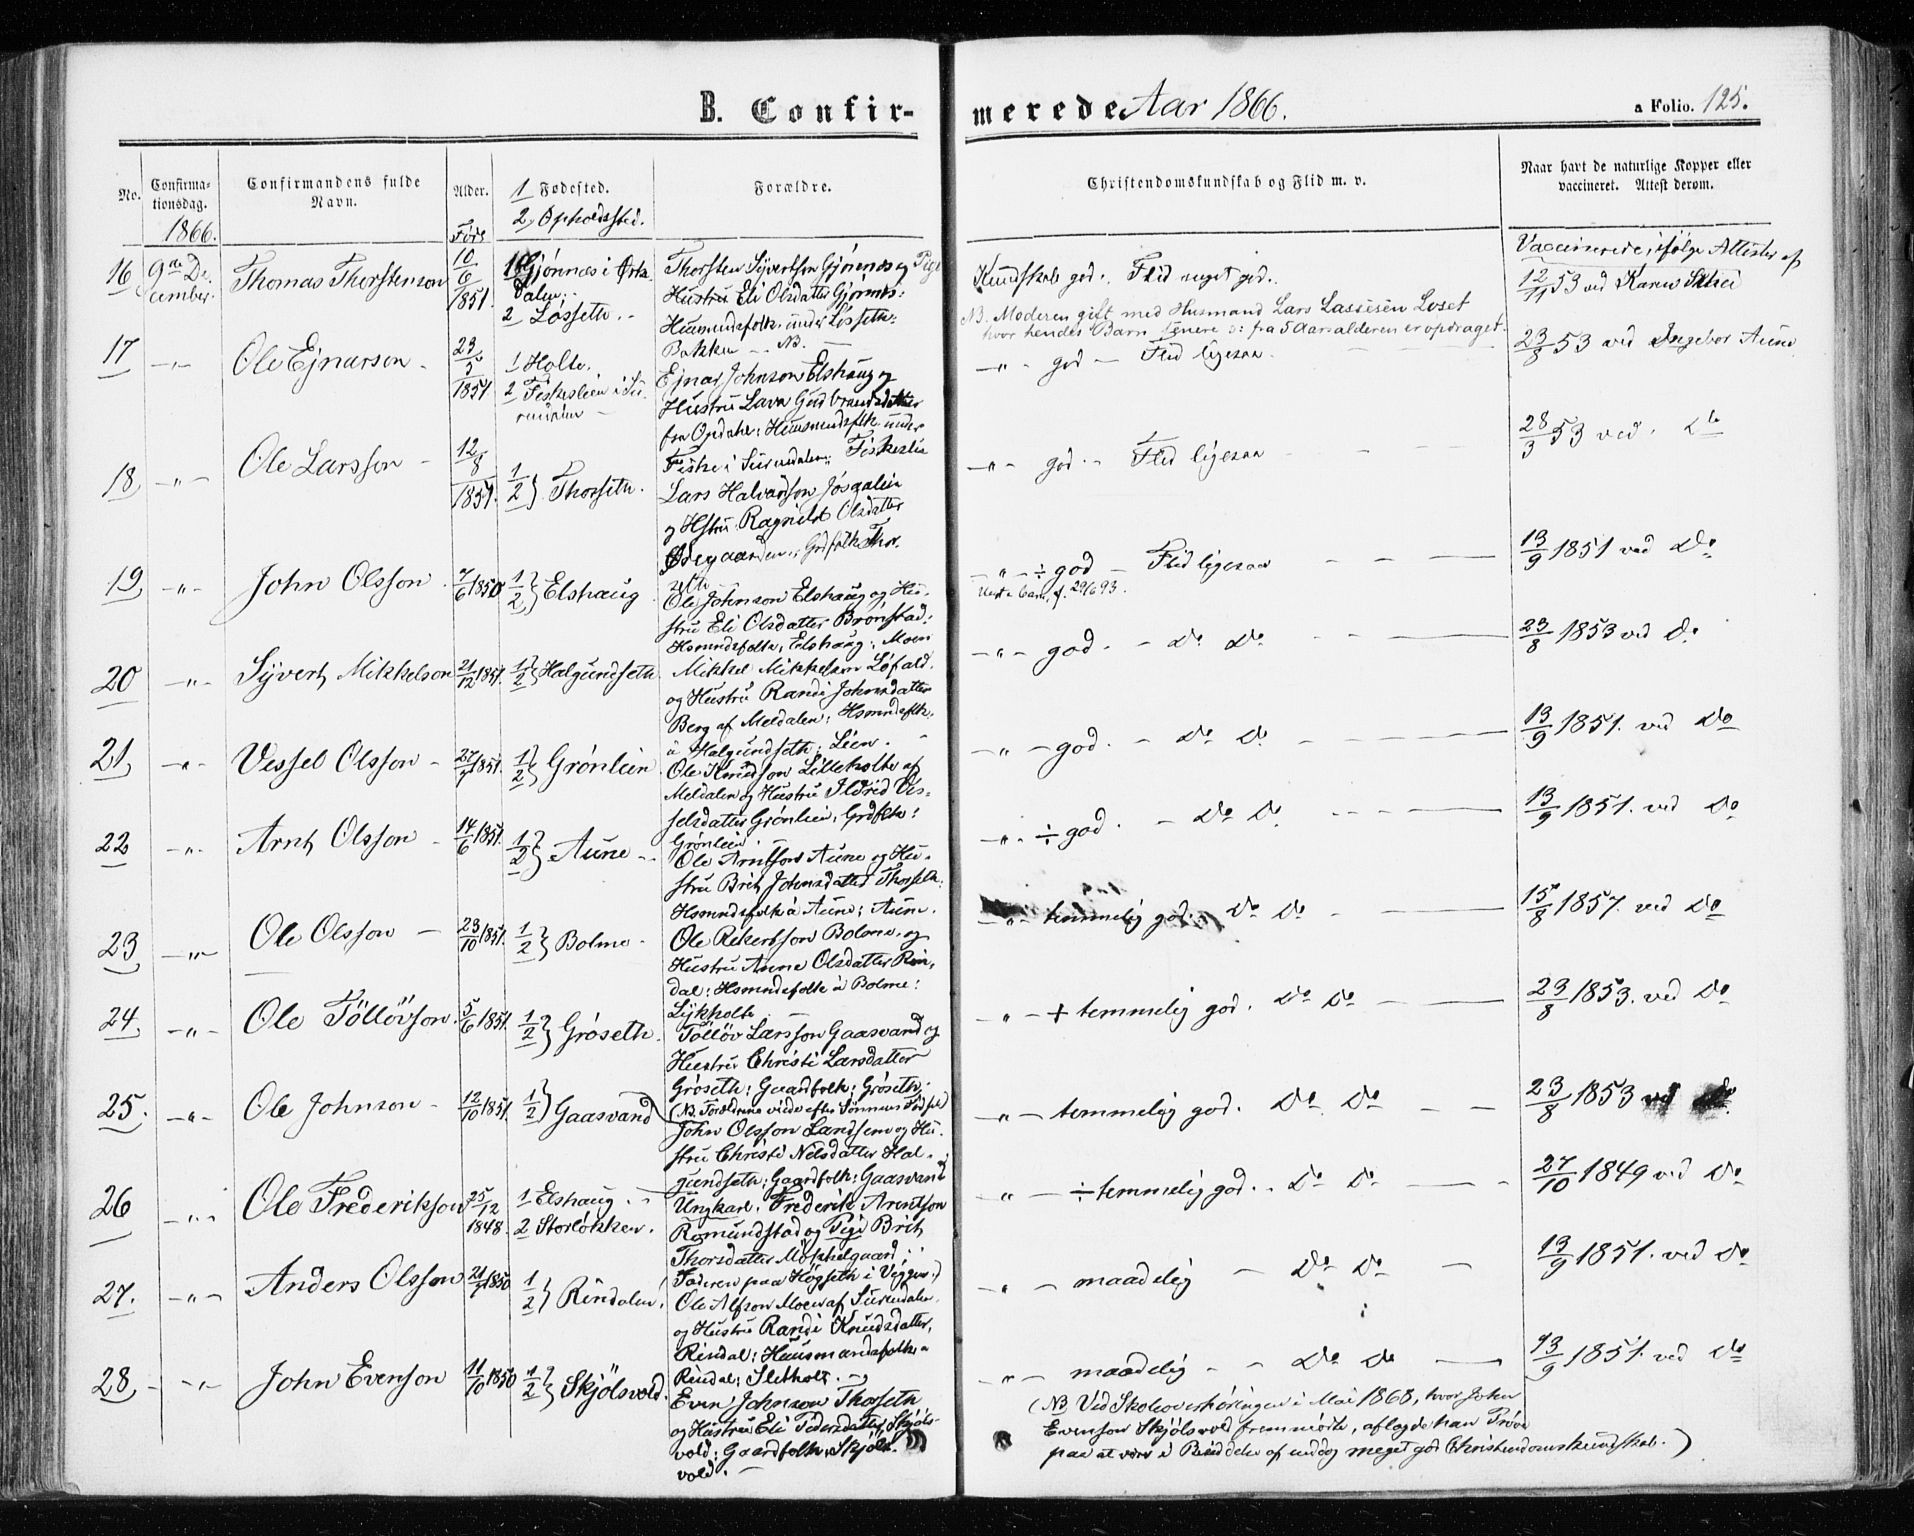 B. Confir-
merede Aar 1866.
a Folio. 125.
No.
Confirma-
tionsdag.
1866.
Confirmandens fulde
Navn.
Alder.
Født
1 Fødested.
2, Opholdssted.
Forældre.
Christendomskundskab og Flid m. v.
Naar havt de naturlige Kopper eller
vaccineret. Attest derom.
Vaccinerede, ifølge Attester af
16 9de De-
cember.
Thomas Thorstenson
10/6 1851.
1 Gjønnes i Ørke-
dalen.
2 Løsseth.
Thorsten Sivertson Gjønnes og Pige
Hustru Eli Olsdatter Gjønnes:
Husmndsfolk, under Løsseth:
Bakken — NB. —
Kundskab god. Flid meget god.
NB. Moderen gift med Husmand Lars Larssen Løset
hvor hendes Barn senere ɔ: fra 5 Aarsalderen er opdraget.
12/11 53 ved Karen
17 — " — Ole Ejnarson
1851.
1 Holte.
2 Fiskeslien i Su-
rendalen
Ejnar Johnson Elshaug og
Hustru Gudbrandsdatter
fra Opdahl: Husmndsflk. under
Fiske i Surendalen: Fiskeslien
— " — god — Flid ligesaa
23/8 53 ved Ingebor Aune
18, — " — Ole Larsson
12/8 1851.
1/2} Thorseth.
Lars Halvardson
og Hstru Ragnild Olsdatter
Ødegaarden: Grdfolk: Thor-
seth
— " — god. — Flid ligesaa
28/3 53 ved. Do
19, — " — John Olsson
7/6 1850
1/2} Elshaug
Ole Johnson Elshaug og Hu-
stru Eli Olsdatter Brønstad:
Hsmndsfolk, Elshaug: Moen
— " — ÷ god — Flid ligesaa
29/6 93.
13/9 1851 ved Do
20 — " — Sivert Mikkelson
21/12 1851.
1/2} Halgundseth.
Mikkel Mikkelsen Løfald
og Hustru Randi Johnsdatter
Berg af Meldalen: Hsmndsflk.
à Halgundseth: Lien.
— " — god. — Do Do
23/8 1853 ved Do
21, — " — Vessel Olsson
1851.
1/2} Grønlien
Ole Knudson Lilleholte af
Meldalen og Hustru Ildrid Ves-
selsdatter Grønlien: Grdflk:
Grønlien. —
— " — god. — Do Do
13/9 1851. ved Do
22 — " — Arnt Olsson
14/6 1851.
1/2} Aune
Ole Arntson Aune og Hu-
stru Brit Johnsdatter Thorseth:
Hsmndsfolk à Aune: Aune.
— " — ÷ god. — Do Do
13/9 1851. ved Do
23 — " — Ole Olsson
23/10 1851.
1/2} Bolme
Ole Rekertsson Bolme og
Hustru Anne Olsdatter Rin-
dal: Hsmndsfolk à Bolme:
Lykholt
— " — temmelig god. Do Do
15/8 1857. ved Do
24, — " — Ole Tøllövson.
5/6 1851.
1/2} Grøseth.
Töllöv Larsson Gaasvand og
Hustru Christi Larsdatter
Grøseth: Gaardfolk: Grøseth.
(NB. Forældrene viede efter Sønnens Fødsel)
— " — + temmelig god. Do Do
23/8 1853. ved Do
25. — " — Ole Johnson
12/10 1851.
1/2} Gaasvand
John Olsson Landsem og Hu-
stru Christi Nilsdatter Hal-
gundseth: Gaardfolk: Gaasvand
— " — temmelig god. Do Do
23/8 1853 ved Do.
26 — " — Ole Frederikson
25/12 1848.
1 Elshaug.
2 Storløkken.
Ungkarl: Frederik Arntson
Romundstad og Pige Brit
Thorsdatter Møkkelgaard
(Faderen paa Høgseth i Viggen.)
— " — ÷ temmelig god. Do Do
27/10 1849 ved Do
27. — " — Anders Olsson
1850
1/2} Rindalen.
Ole Alfson Moen af Surendalen
og Hustru Randi Knudsdatter,
Rindal: Huusmandsfolk à
Rindal: Sletholt.
— " — maadelig — Do Do
13/9 1851. ved Do
28, — " — John Evenson
11/10 1850
1/2} Skjölsvold.
Even Johnson Thorseth
og Hustru Eli Pedersdatter Skjöls-
vold: Gaardfolk: Skjöls-
vold.
— " — maadelig — Do Do
13/9 1851. ved Do
(NB Ved Skoleoverhøringen i Mai 1868, hvor John
Evenson Skjölsvold fremmødte, aflagde han Prøve
paa at være i Besiddelse af endog meget god Christendomskundskab.)